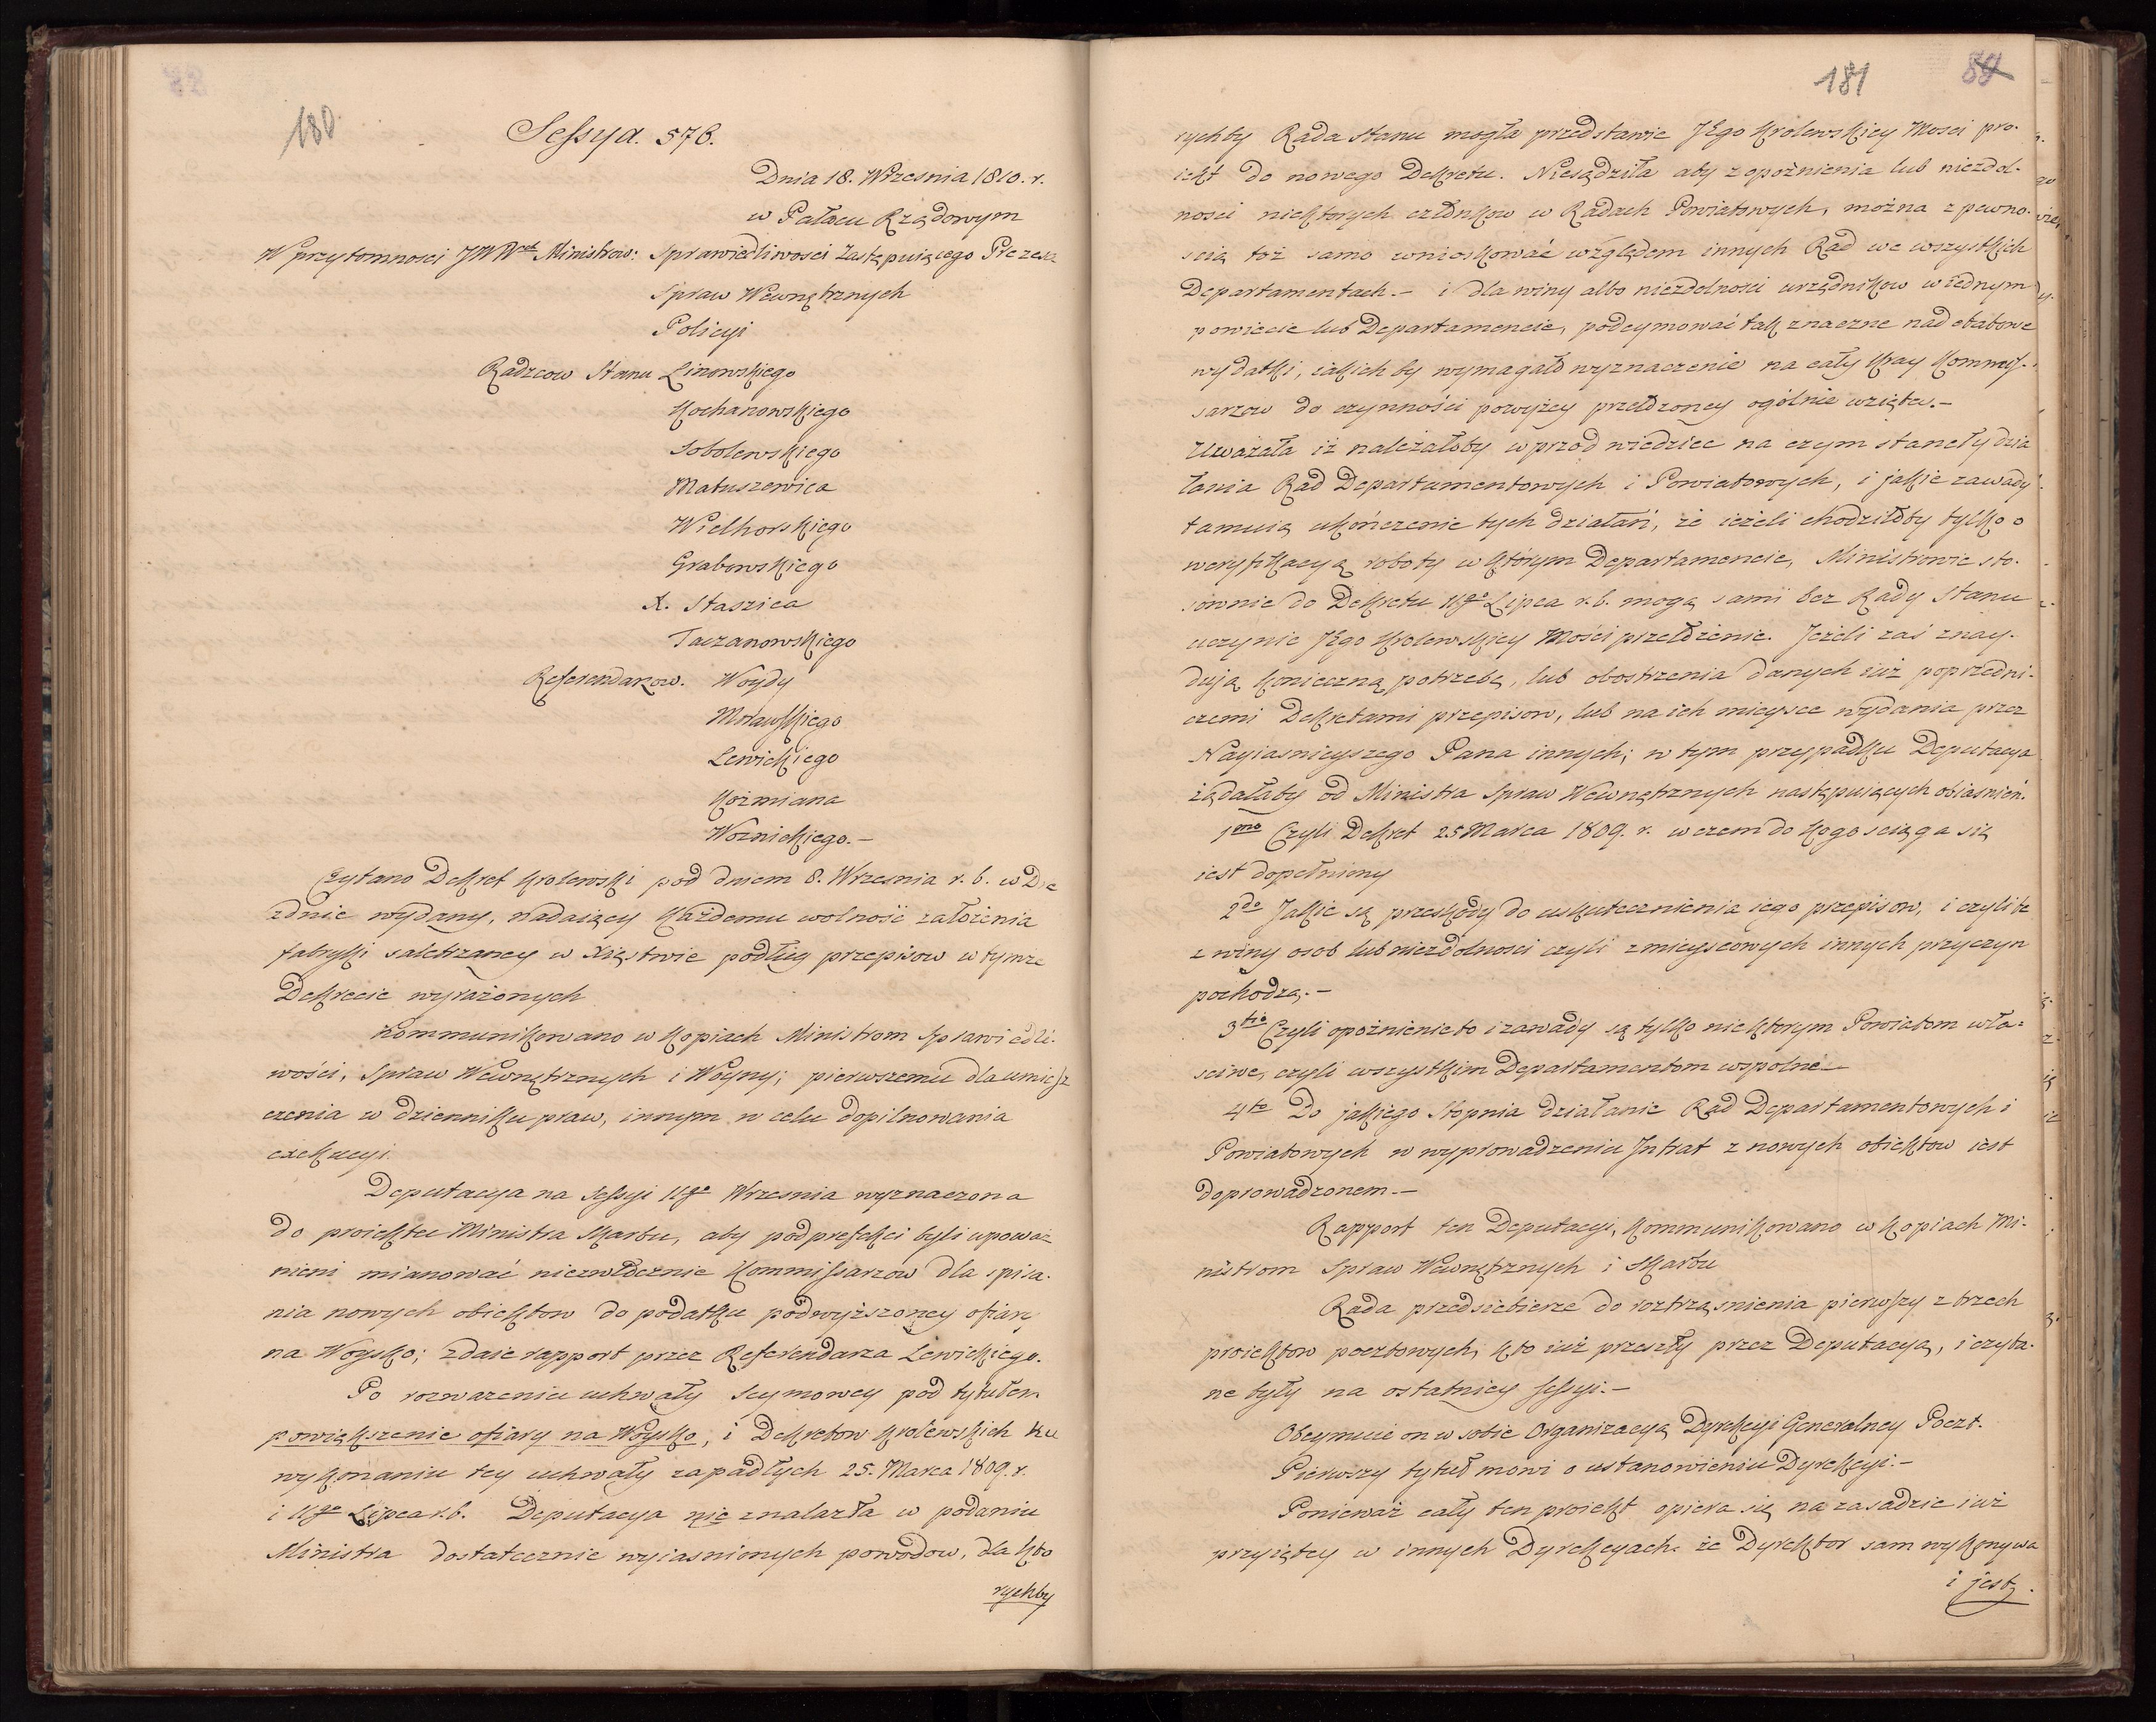 180
Sessya. 576.
Dnia 18. Września 1810. r.
w Pałacu Rządowym
W przytomnosci JWW Ministrow: Sprawiedliwosci Zastępuiącego Prezesa
Spraw Wewnętrznych
Policyi
Radzcow Stanu Linowskiego
Kochanowskiego
Sobolewskiego
Matuszewica
Wielhorskiego
Grabowskiego
X. Staszica
Taczanowskiego
Referendarzow. Woydy
Morawskiego
Lewickiego
Koźmiana
Woznickiego.—
Czytano Dekret Krolewski pod dniem 8. Wrzesnia r. b. w Dre
znie wydany, nadaiący każdemu wolność założenia
fabryki saletrzaney w Xięstwie podług przepisow w tymze
Dekrecie wyrażonych
Kommunikowano w kopiach Ministrom Sprawiedli-
wości, Spraw Wewnętrznych i Woyny; pierwszemu dla umiesz
czenia w dzienniku praw, innym w celu dopilnowania
exekucyi.
Deputacya na Sessyi 11go Wrzesnia wyznaczona
do proiektu Ministra Skarbu, aby podprefekci byli upowaz
nieni mianować niezwłocznie Kommissarzow dla spisa-
nia nowych obiektow do podatku podwyższoney ofiary
na Woysko; zdaie rapport przez Referendarza Lewickiego.
Po rozwazeniu uchwały Seymowey pod tytułem
powiększenie ofiary na Woysko, i Dekretow Krolewskich ku
wykonaniu tey uchwały zapadłych 25. Marca 1809. r.
i 11go Lipca r. b. Deputacya nie znalazła w podaniu
Ministra dostatecznie wyiasnionych powodow, dla kto
rychby
181
rychby Rada Stanu mogła przedstawic JEgo Krolewskiey Mosci pro-
iekt do nowego Dekretu. Niesądziła aby z opoźnienia lub niezdol-
nosci niektorych członkow w Radach Powiatowych, można z pewno-
scią toż samo wnioskować względem innych Rad we wszystkich
Departamentach — i dla winy albo niezdolnosci urzędnikow w iednym
powiecie lub Departamencie, podeymować tak znaczne nad etatowe
wydatki, iakich by wymagało wyznaczenie na cały Kray Kommis-
sarzow do czynności powyżey przełożoney ogólnie wziętey.—
Uważała iż należałoby wprzod wiedziec na czym stanęły dzia
łania Rad Departamentowych i Powiatowych, i jakie zawady
tamuią ukończenie tych działań, że ieżeli chodziłoby tylko o
weryfikacyą roboty w którym Departamencie, Ministrowie sto-
sownie do Dekretu 11go Lipca r. b. mogą sami bez Rady Stanu
uczynic JEgo Krolewskiey Mości przełożenie. Jeżeli zaś znay-
dują konieczną potrzebę, lub obostrzenia danych iuż poprzedni-
czemi Dekretami przepisow, lub na ich mieysce wydania przez
Nayiasnieyszego Pana innych; w tym przypadku Deputacya
żądałaby od Ministra Spraw Wewnętrznych następuiących obiasnień.
1mo Czyli Dekret 25 Marca 1809. r. w czem do kogo sciąga się
iest dopełniony
2do Jakie są przeszkody do uskutecznienia iego przepisow, i czyli te
z winy osob lub niezdolnosci czyli z mieyscowych innych przyczyn
pochodzą.—
3tio Czyli opoźnienie to i zawady są tylko niektorym Powiatom wła-
sciwe, czyli wszystkim Departamentom wspolne—
4to Do jakiego Stopnia działanie Rad Departamentowych i
Powiatowych w wyprowadzeniu Intrat z nowych obiektow iest
doprowadzonem.—
Rapport ten Deputacyi, kommunikowano w kopiach Mi-
nistrom Spraw Wewnętrznych i Skarbu
Rada przedsiebierze do roztrząsnienia pierwszy z trzech
proiektow pocztowych, kto iuż przeszły przez Deputacyą, i czyta-
ne były na ostatniey Sessyi.—
Obeymuie on w sobie Organizacyą Dyrekcyi Generalney Poczt.
Pierwszy tytuł mowi o ustanowieniu Dyrekcyi.—
Ponieważ cały ten proiekt opiera się na zasadzie iuż
przyiętey w innych Dyrekcyach że Dyrektor sam wykonywa
i jest